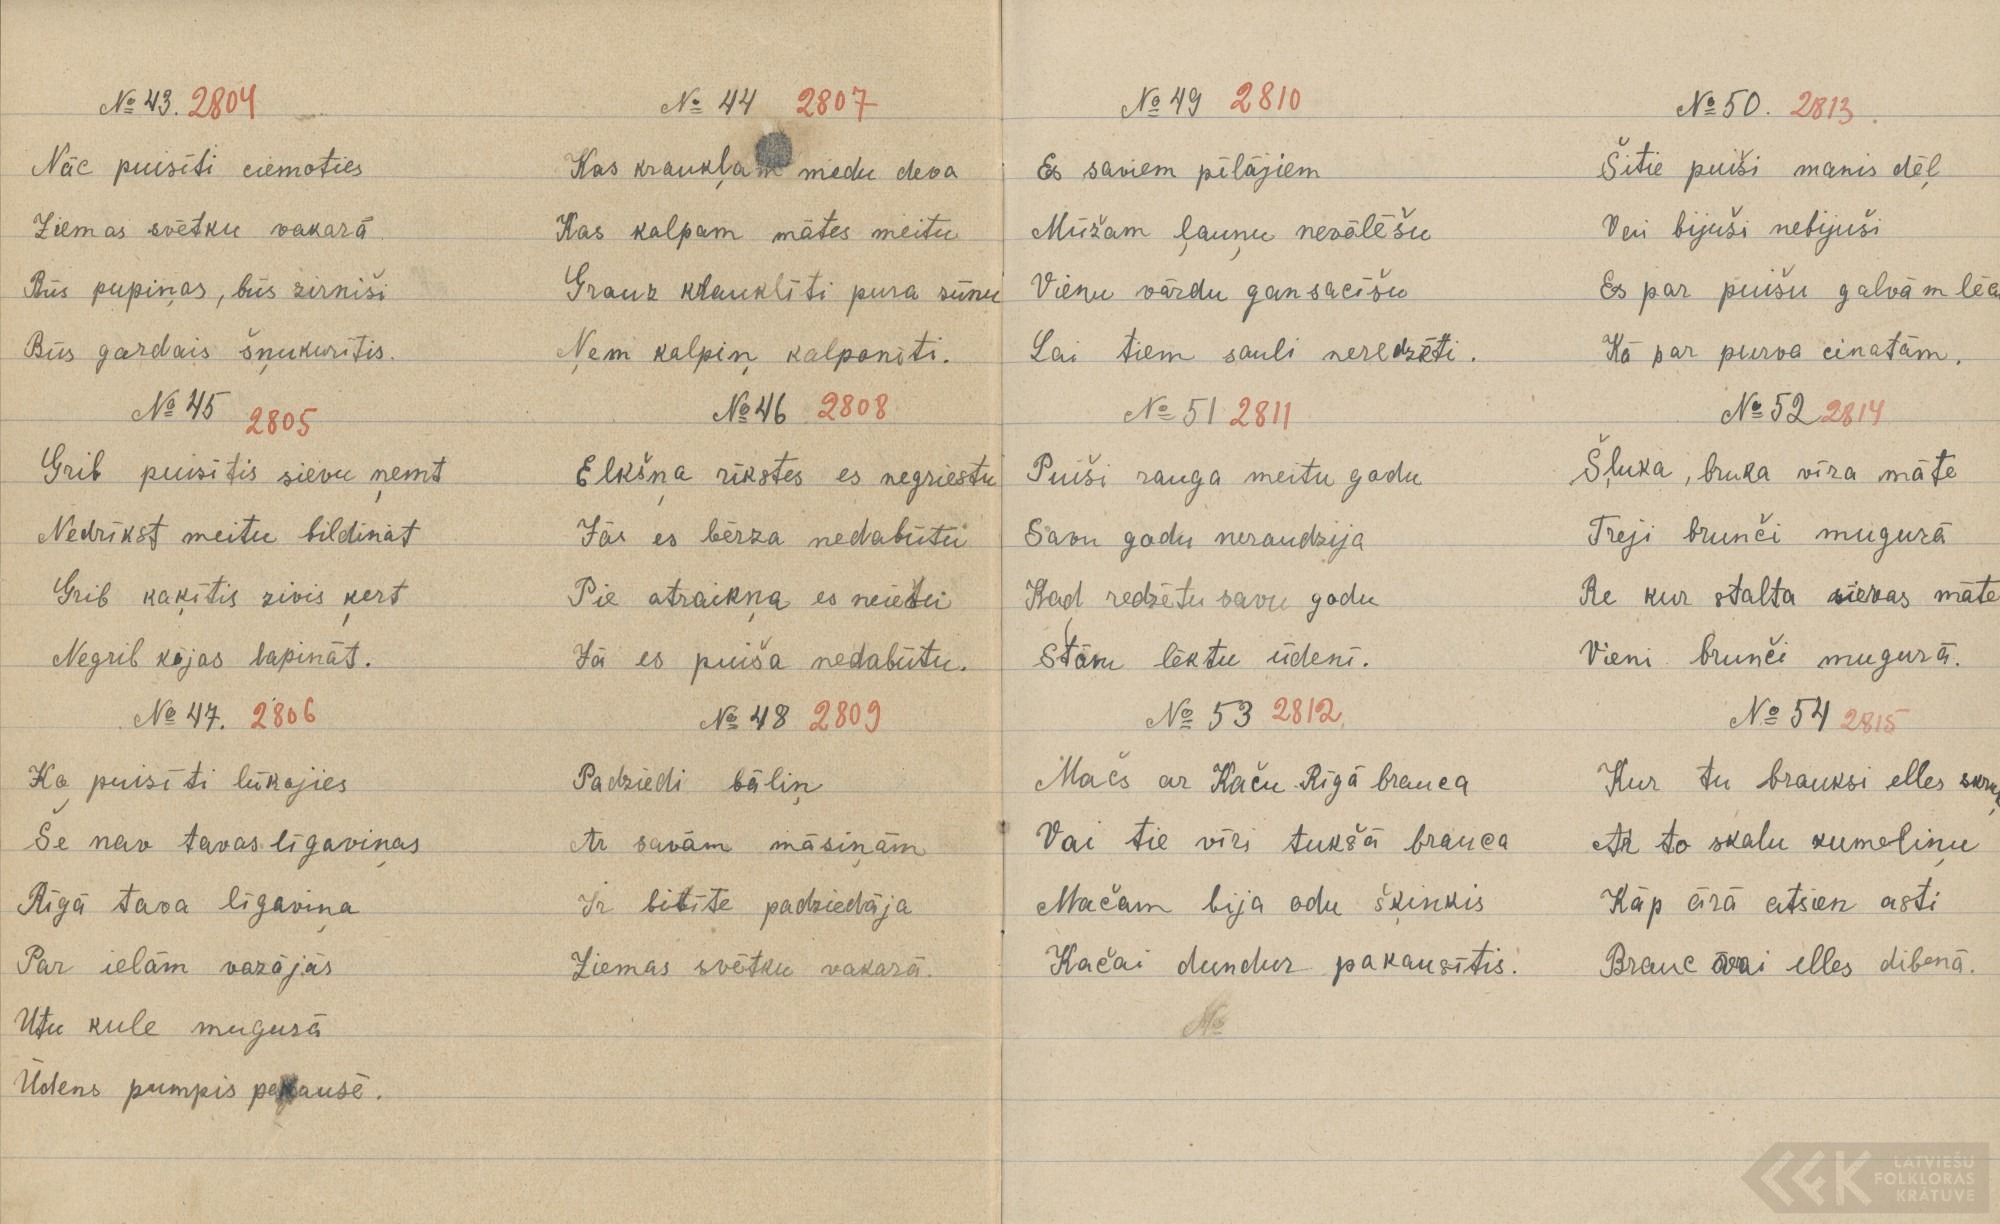 № 43. 2804
Nāc puisīti ciemoties
Ziemas svētku vakarā
Būs pupiņas, būs zirnīši
Būs gardais šņukurītis.
№ 45 2805
Grib puisītis sievu ņemt
Nedrīkst meitu bildināt
Grib kaķītis zivis ķert
Negrib kājas lapināt.
№ 47. 2806
Ko puisīti lūkojies
Še nav tavas līgaviņas
Rīgā tava līgaviņa
Par ielām vazājās
Utu kule mugurā
Ūdens pumpis pakausē.
№ 44 2807
Kas kraukļam medu deva
Kas kalpam mātes meitu
Grauz krauklīti pura sūnu
Ņem kalpiņ kalponīti.
№ 46 2808
Elkšņa rīkstes es negriestu
Jās es bērza nedabūtu
Pie atraikņa es neietu
Jā es puiša nedabūtu.
№ 48 2809
Padziedi bāliņ
Ar savām māsiņām
Ir bitīte padziedāja
Ziemas svētku vakarā.
№ 49 2810
Es saviem pēlājiem
Mūžam ļauņu nevēlēšu
Vienu vārdu gan sacīšu
Lai tiem sauli neredzēti.
№ 51 2811
Puiši rauga meitu godu
Savu godu neraudzīja
Kad redzētu savu godu
Stāvu lēktu ūdenī.
№ 53 2812.
Mačs ar Kaču Rīgā brauca
Vai tie vīri tukšā brauca
Mačam bija odu šķinķis
Kačai dundur pakausītis.
№
№ 50. 2813.
Šitie puiši manis dēļ
Vai bijuši nebijuši
Es par puišu galvām lēcu
Kā par purva cinatām.
№ 52 2814
Šļuka, bruka vīra māte
Treji brunči mugurā
Re kur stalta sievas māte
Vieni brunči mugurā.
№ 54 2815
Kur tu brauksi elles
Ar to skalu kumeliņu
Kāp ārā atsien asti
Brauc avai elles dibenā.
LATVIEŠU
FOLKLORAS
KRĀTUVE